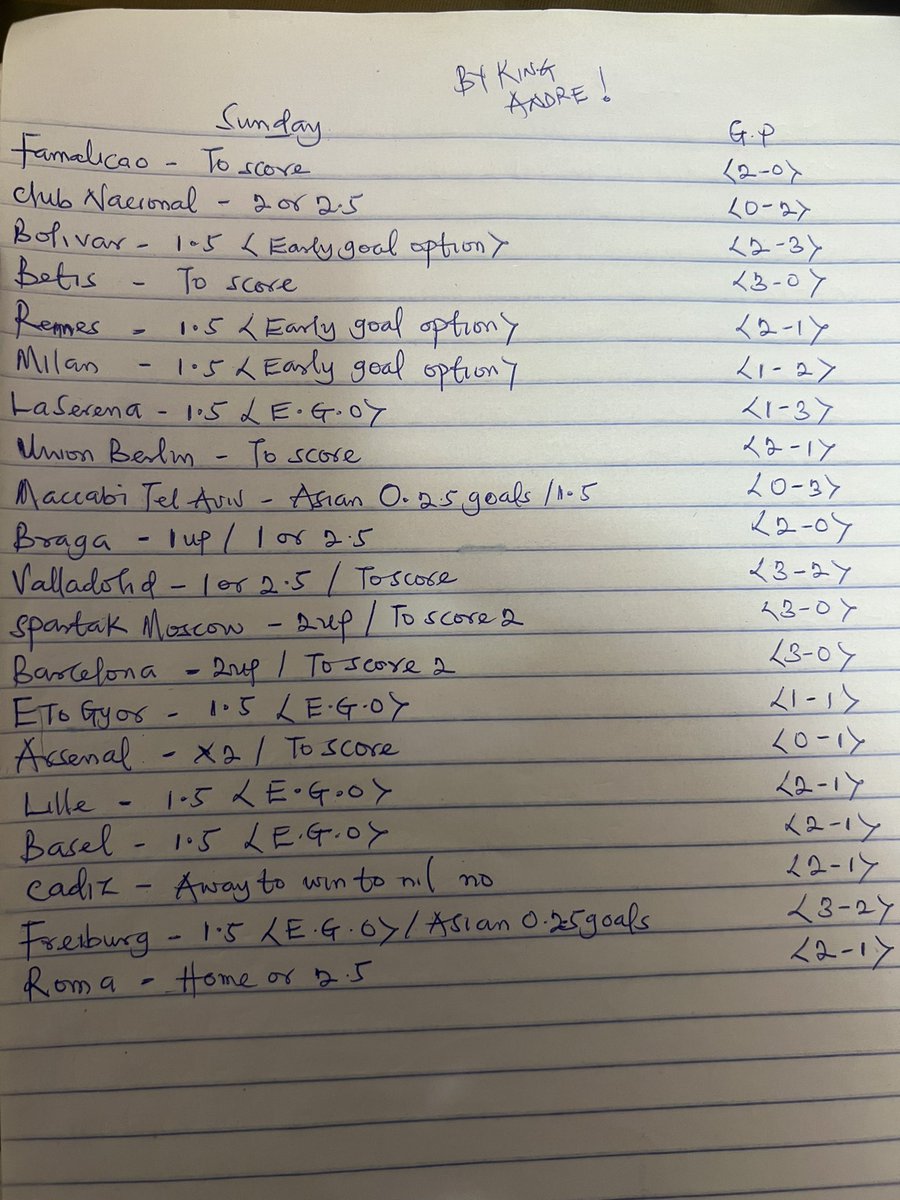 BY KING
ANDRE!
Sunday G.P
Famalicao - To score <2-0>
Club Nacional - 2 or 2.5 <0-2>
Bolivar - 1.5 <Early goal option> <2-3>
Betis - To score <3-0>
Rennes - 1.5 <Early goal option> <2-1>
Milan - 1.5 <Early goal option> <1-2>
LaSerena - 1.5 <E.G.O> <1-3>
Union Berlin - To score <2-1>
Maccabi Tel Aviv - Asian 0.25 goals /1.5 <0-3>
Braga - 1up / 1 or 2.5 <2-0>
Valladolid - 1 or 2.5 / To score <3-2>
Spartak Moscow - 2up / To score 2 <3-0>
Barcelona - 2up / To score 2 <3-0>
ETo Gyor - 1.5 <E.G.O> <1-1>
Arsenal - X2 / To score <0-1>
Lille - 1.5 <E.G.O> <2-1>
Basel - 1.5 <E.G.O> <2-1>
Cadiz - Away to win to nil no <2-1>
Freiburg - 1.5 <E.G.O> / Asian 0.25 goals <3-2>
Roma - Home or 2.5 <2-1>